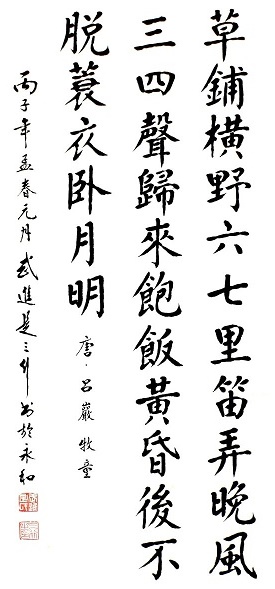 草鋪橫野六七里笛弄晚風
三四聲歸來飽飯黃昏後不
脫蓑衣卧月明
唐·呂巖 牧童
丙子年孟春元月武進是书於永和